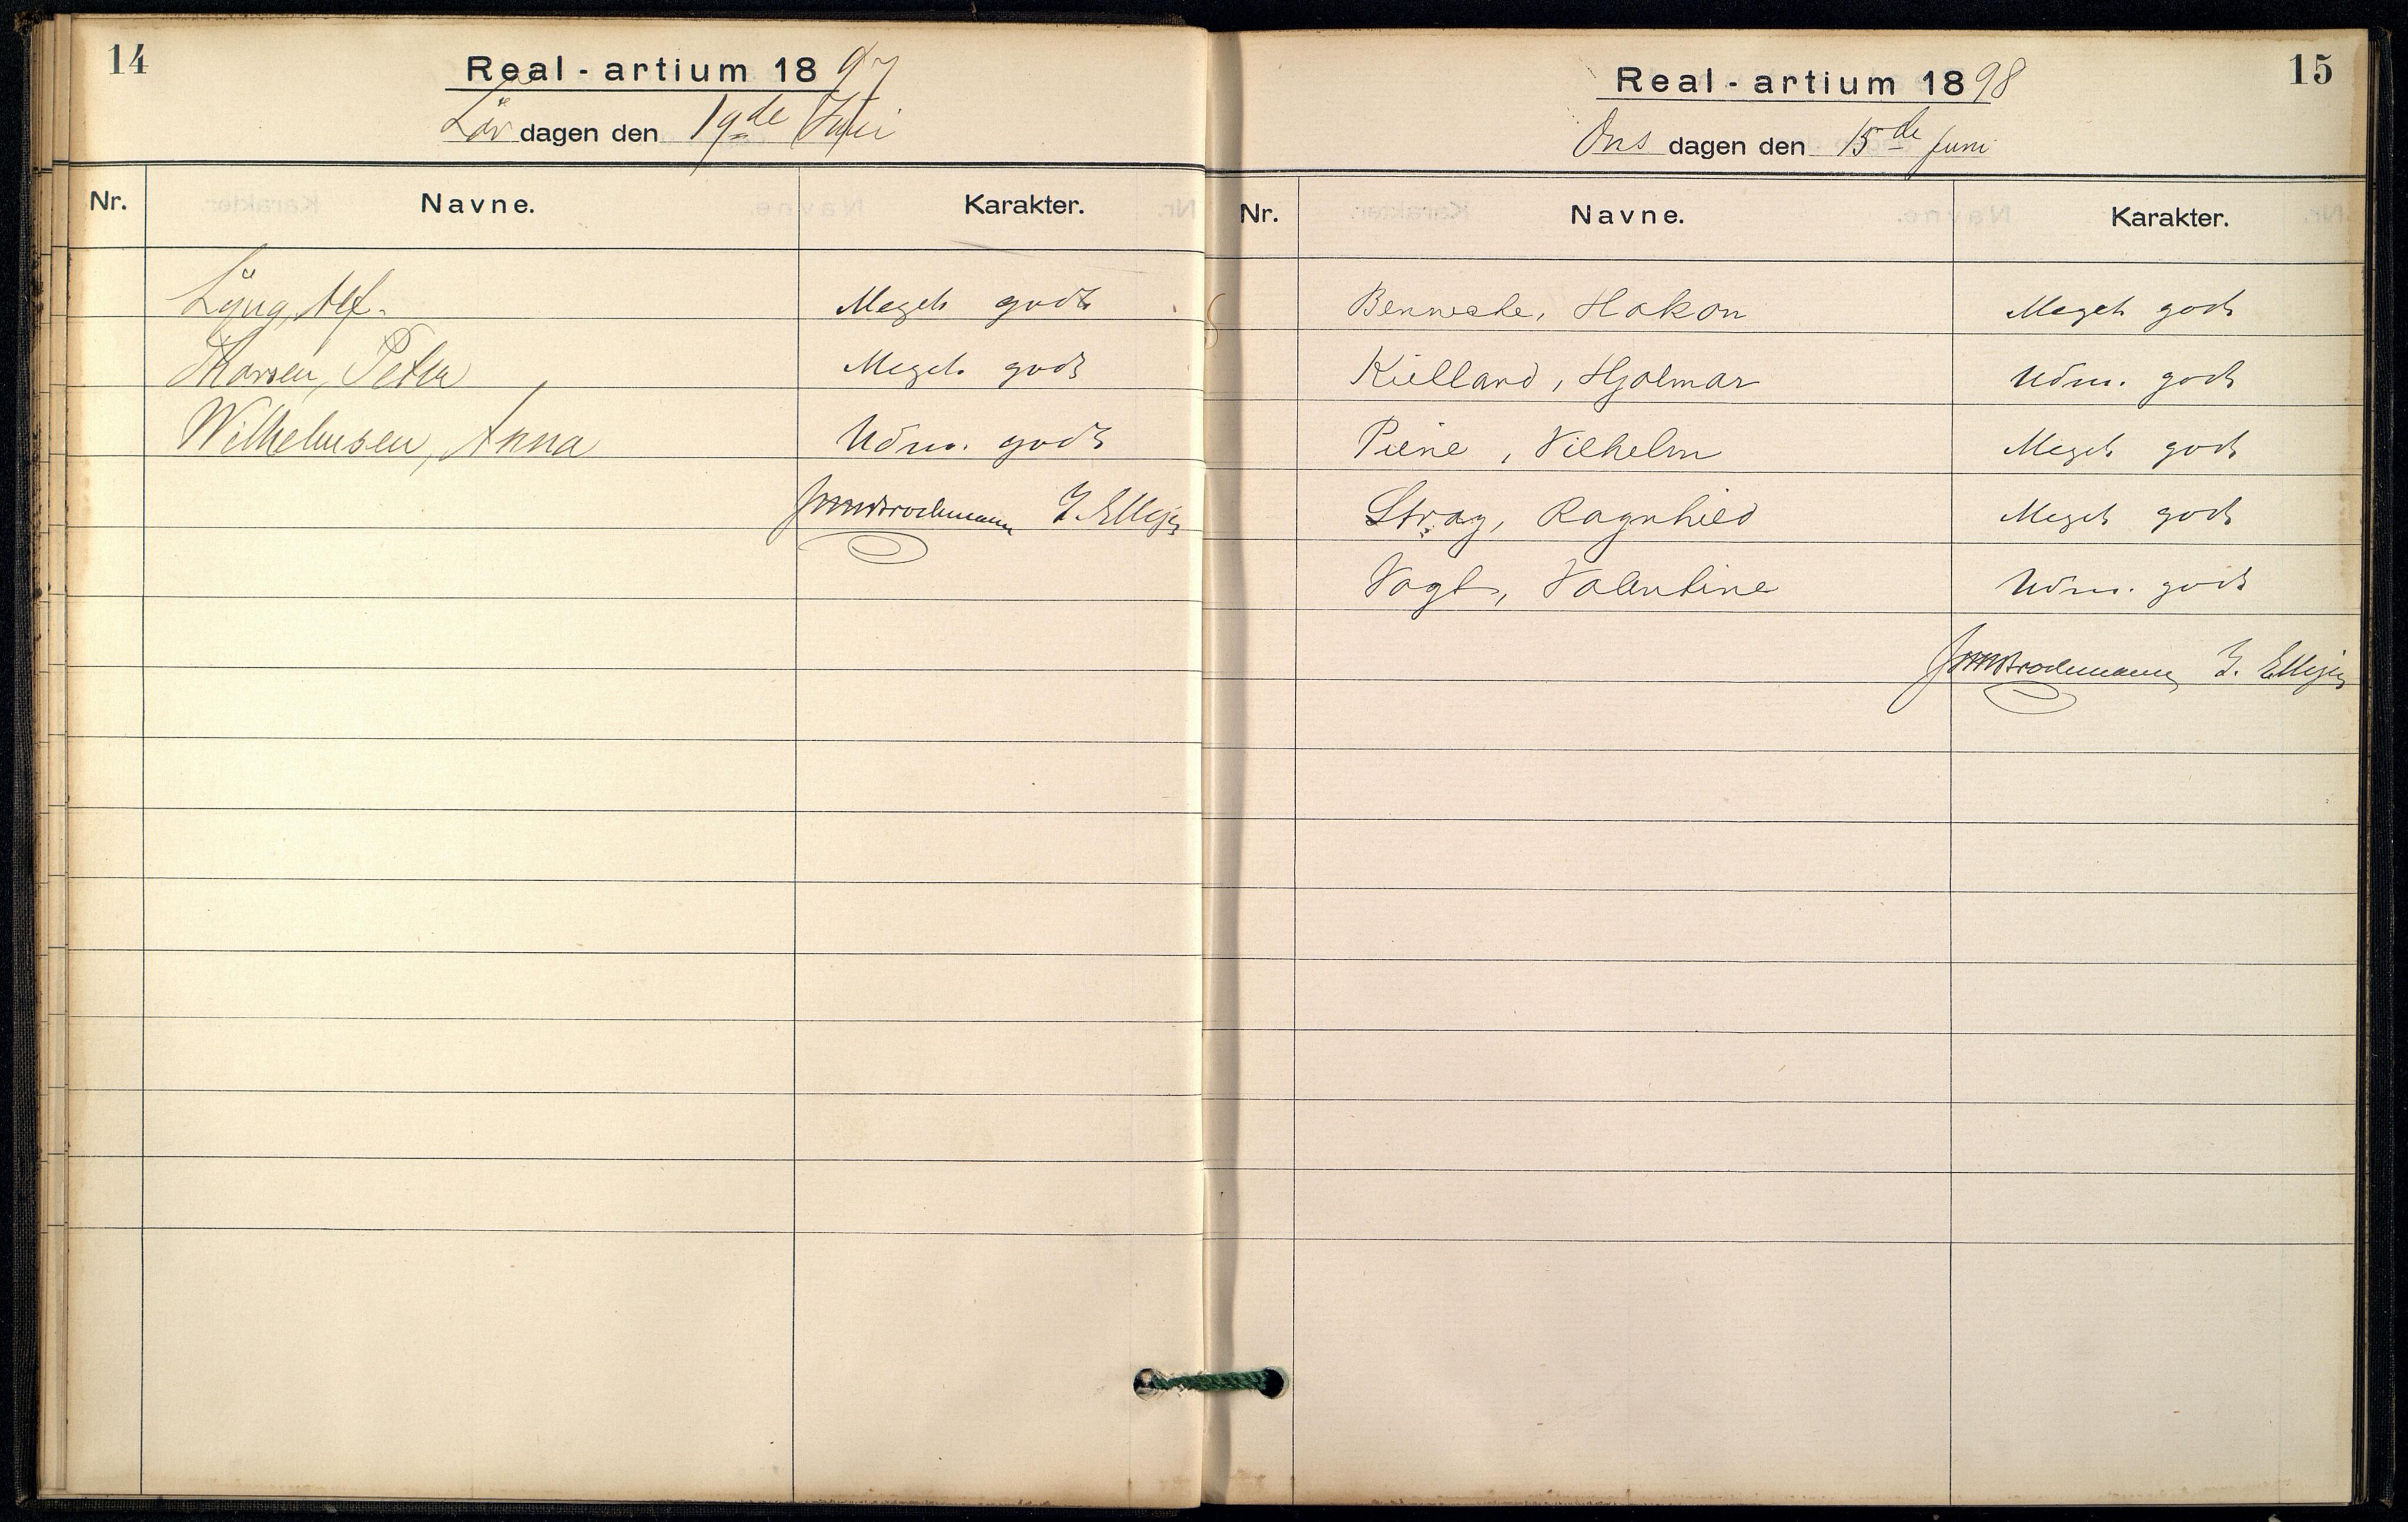 14
Real - artium 1897
Lördagen den 19de Juni
Nr. Navne. Karakter.
Ljung, Alf. Meget godt
Thorsen, Petra Meget godt
Wilhelmsen, Anna Udm. godt
15
Real - artium 1898
Onsdagen den 15de Juni
Nr. Navne. Karakter.
Benneche, Hakon Meget godt
Kielland, Hjalmar Udm. godt
Piene, Vilhelm Meget godt
Stray, Ragnhild Meget godt
Vogt, Valentine Udm. godt